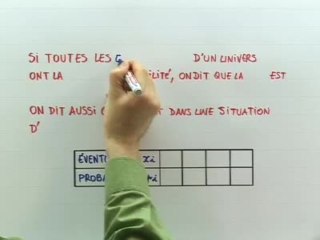 SI TOUTES LES D'UN UNIVERS
ONT LA ILITÉ, ON DIT QUE LA EST
ON DIT AUSSI DANS UNE SITUATION
D'
ÉVENTU xi
PROBA pi